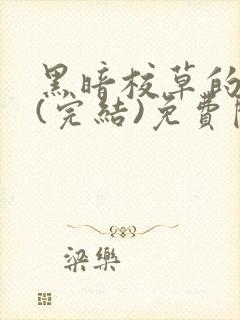 黑暗校草的
(完結)免費
梁樂